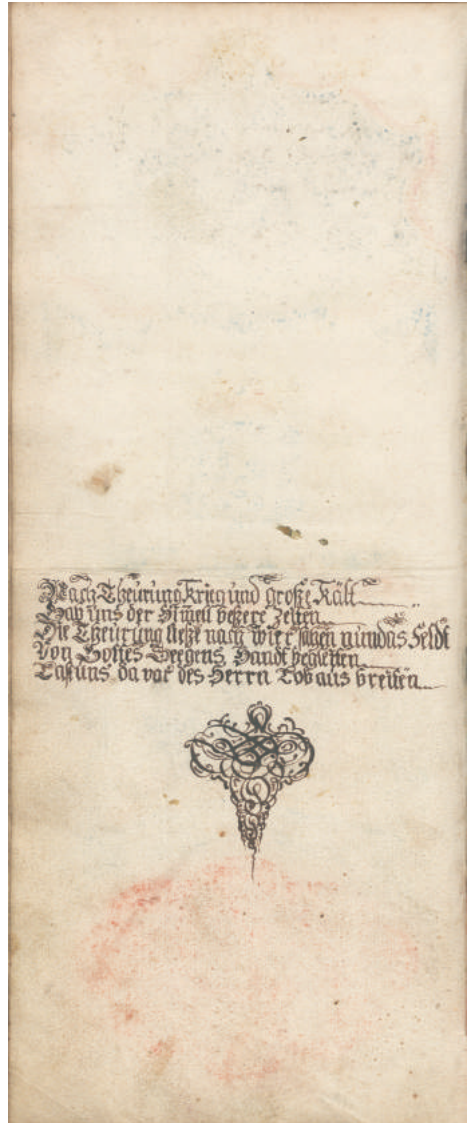 Nach Theürung Krieg und große Kält
Gab üns der Himell beßere Zeiten
Die Theürung ließe nach wier sahen nün das Feldt
Von Gottes Seegens Handt begleiten
Last üns da vor des Herrn Lob aus breiten